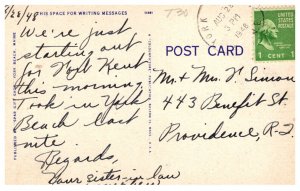 THIS SPACE FOR WRITING MESSAGES
8/28/48
We're just
starting out
for York Kent
this morning.
Took in York
Beach last
nite.
Regards,
Your sister-in law
POST CARD
YORK
AUG 28
PM
1948
1 CENT 1
Mr + Mrs. V. Simion
443 Benefit St.
Providence, R-I.